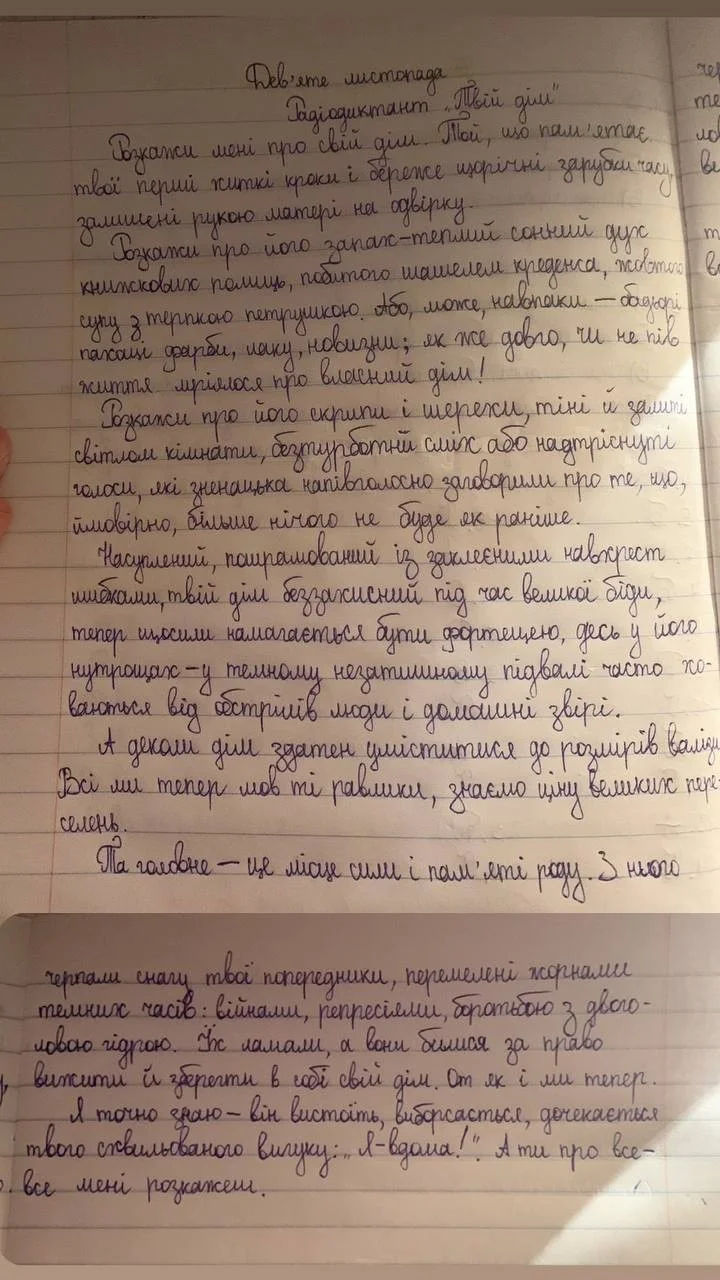 Дев'яте листопада
Радіодиктант „Твій дім"
Розкажи мені про свій дім. Той, що пам'ятає
твої перші хиткі кроки і береже щорічні зарубки часу,
залишені рукою матері на одвірку.
Розкажи про його запах-теплий сонний дух
книжкових полиць, побитого шашелем креденса, жовтого
супу з терпкою петрушкою. Або, може, навпаки — бадьорі
пахощі фарби, лаку, новизни; як же довго, чи не пів
життя мріялося про власний дім!
Розкажи про його скрипи і шерехи, тіні й залиті
світлом кімнати, безтурботній сміх або надтріснуті
голоси, які зненацька напівголосно заговорили про те, що,
ймовірно, більше нічого не буде як раніше.
Насуплений, пошрамований із заклеєними навхрест
шибками, твій дім беззахисний під час великої біди,
тепер щосили намагається бути фортецею, десь у його
нутрощах-у темному незатишному підвалі часто хо-
ваються від обстрілів люди і домашні звірі.
А деколи дім здатен уміститися до розмірів валізи
Всі ми тепер мов ті равлики, знаємо ціну великих пере-
селень.
Та головне — це місце сили і пам'яті роду. З нього
черпали снагу твої попередники, перемелені жорнами
темних часів: війнами, репресіями, боротьбою з двого-
ловою гідрою. Їх ламали, а вони билися за право
вижити й зберегти в собі свій дім. От як і ми тепер.
Я точно знаю — він вистоїть, виборсається, дочекається
твого схвильованого вигуку: „Я-вдома!". А ти про все-
все мені розкажеш.